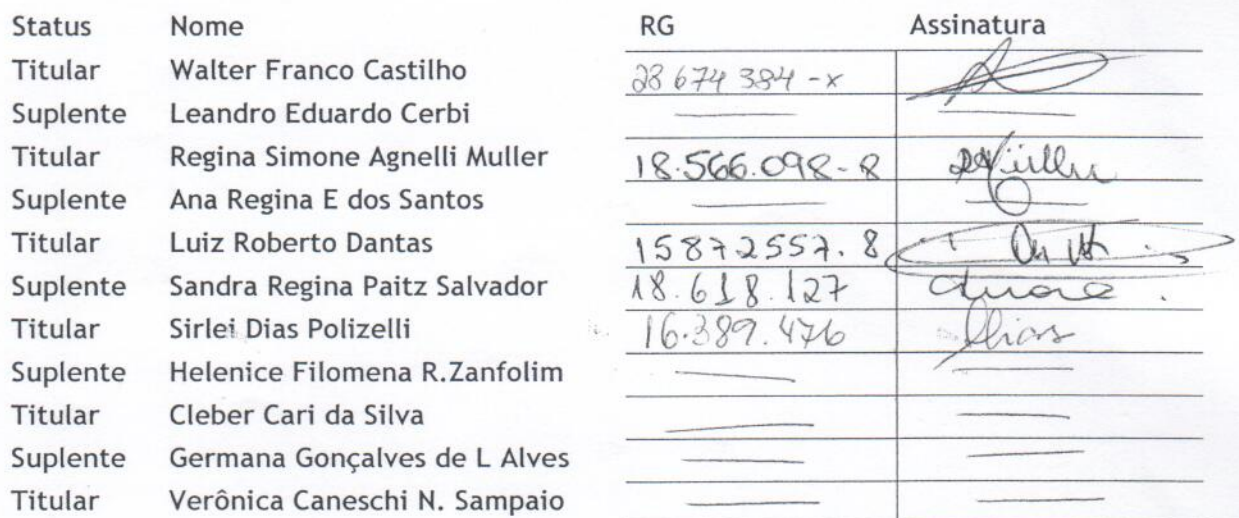 Status Nome RG Assinatura
Titular Walter Franco Castilho 28 674 384 -x
Suplente Leandro Eduardo Cerbi
Titular Regina Simone Agnelli Muller 18.566.098-8
Suplente Ana Regina E dos Santos
Titular Luiz Roberto Dantas 15872557.8
Suplente Sandra Regina Paitz Salvador 18.618.127
Titular Sirlei Dias Polizelli 16.389.476 Dias
Suplente Helenice Filomena R.Zanfolim
Titular Cleber Cari da Silva
Suplente Germana Gonçalves de L Alves
Titular Verônica Caneschi N. Sampaio